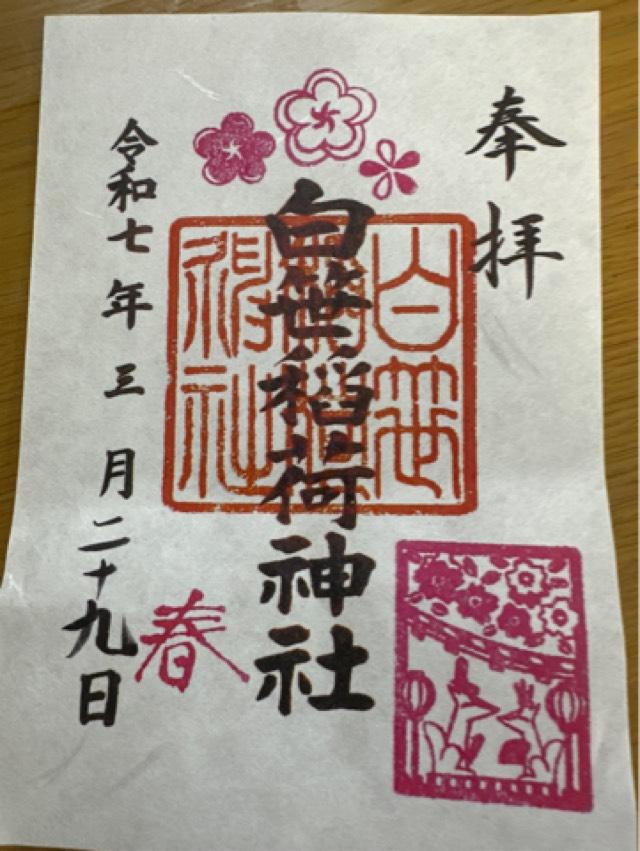 奉拝
白笹稲荷神社
白笹
稲荷
神社
春
令和七年三月二十九日